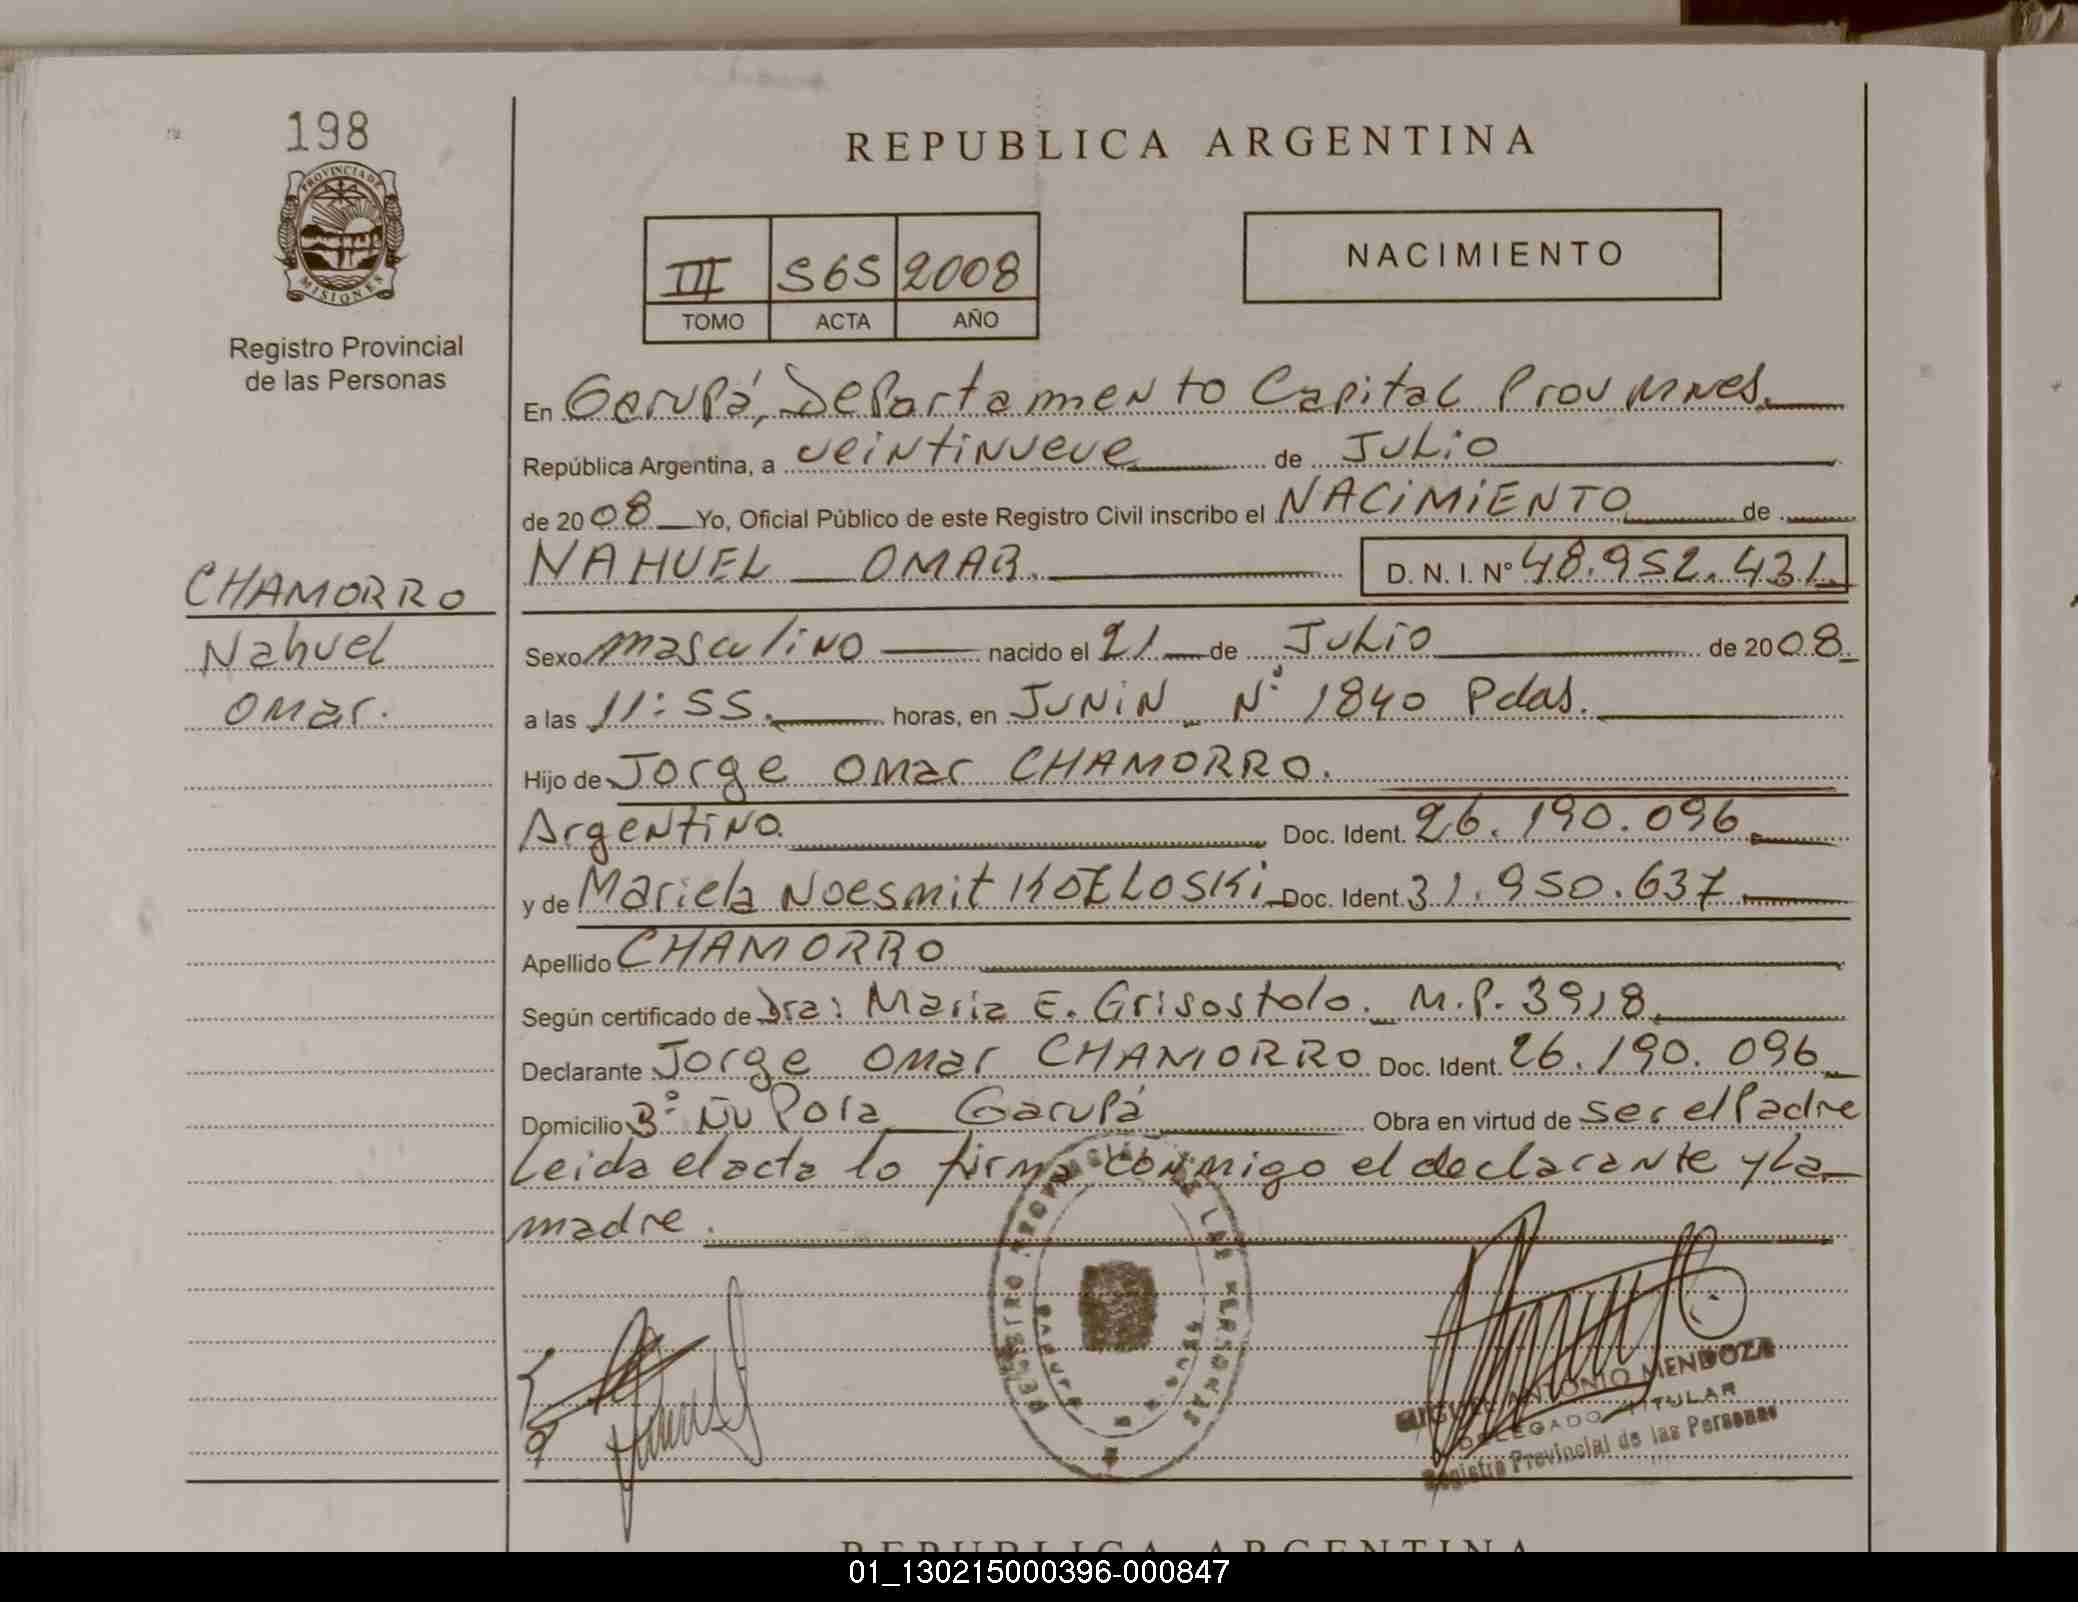 198
PROVINCIA DE
MISIONES
Registro Provincial
de las Personas
REPUBLICA ARGENTINA
III 565 2008
TOMO ACTA AÑO
NACIMIENTO
En Garupá, Departamento Capital Prov Mnes.
República Argentina, a veintinueve de Julio
de 2008 Yo, Oficial Público de este Registro Civil inscribo el NACIMIENTO de
NAHUEL OMAR. D. N. I. Nº 48.952.431.
CHAMORRO
Nahuel
Omar.
Sexo masculino nacido el 21 de Julio de 2008.
a las 11:55. horas, en JUNIN Nº 1840 Pdas.
Hijo de Jorge Omar CHAMORRO.
Argentino. Doc. Ident. 26.190.096.
y de Mariela Noesmit KOZLOSKI Doc. Ident. 31.950.637.
Apellido CHAMORRO
Según certificado de Dra: Maria E. Grisostolo. M.P. 3918.
Declarante Jorge Omar CHAMORRO Doc. Ident. 26.190.096.
Domicilio Bº Ñu Pora Garupá Obra en virtud de ser el Padre
Leida el acta lo firma conmigo el declarante y La
madre.
REGISTRO PROVINCIAL DE LAS PERSONAS
GARUPA
ANTONIO MENDOZA
DELEGADO TITULAR
Registro Provincial de las Personas
REPUBLICA ARGENTINA
01_130215000396-000847